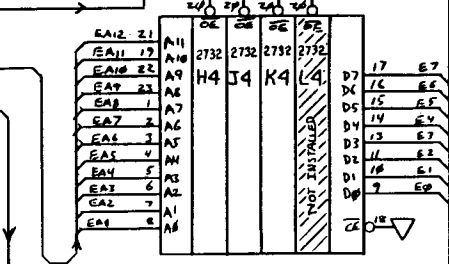 20 20 20 20
OE OE OE OE
EA12 21 A11
EA11 19 A10
EA10 22 A9
EA9 23 A8
EA8 1 A7
EA7 2 A6
EA6 3 A5
EA5 4 A4
EA4 5 A3
EA3 6 A2
EA2 7 A1
EA1 8 A0
2732 2732 2732 2732
H4 J4 K4 L4
NOT INSTALLED
D7 17 E7
D6 16 E6
D5 15 E5
D4 14 E4
D3 13 E3
D2 11 E2
D1 10 E1
D0 9 E0
CE 18